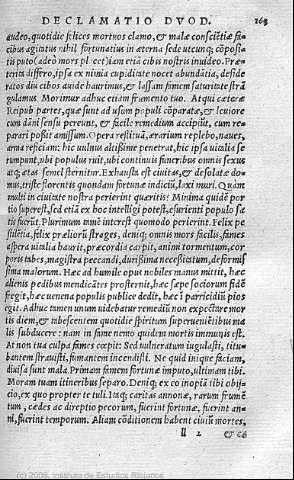 DECLAMATIO DVOD. 163
audeo, quotidie felices mortuos clamo, & malæ conscientiæ fi=
cibus agimus nihil fortunatius in æterna sede utcunq; compo=
tis puto
differo, ipsa ex nimia cupiditate nocet abundātia, deside
ratos diu cibos auide haurimus, & lassam famem saturitate strā
gulamus. Morimur adhuc etiam frumento tuo. At qui cæteræ
Reipub. partes, quæ sunt ad usum populi cōparatæ, & leuiore
cum dāni sensu pereunt, & facile remedium accipiūt, cum re=
parari possit amissum. Opera restituā, ærarium replebo, naues,
arma reficiam: hic uulnus altissime penetrat, hic ipsa uitalia se
rumpunt, ubi populus ruit, ubi continuis funeribus omnis sexus
atq; ætas semel sternitur. Exhausta est ciuitas, & desolatæ do=
mus, triste florentis quondam fortunæ indiciū, laxi muri. Quàm
multi in ciuitate nostra perierint quæritis? Minima quidē por
tio superest, sed etiā ex hoc intelligi potest, esurienti populo sa
tis fuerūt. Plurimum tamē interest quomodo perierint. Felix pe
stilētia, felix præliorū strages, deniq; omnis mors facilis, fames
aspera uitalia haurit, præcordia carpit, animi tormentum, cor
poris tabes, magistra peccandi, durissima necessitatum, deformis
sima malorum. Hæc ad humile opus nobiles manus mittit, hæc
alienis pedibus mendicātes prosternit, hæc sæpe sociorum fidē
fregit, hæc uenena populis publice dedit, hæc in parricidiū pios
egit. Adhuc tamen unum uidebatur remediū non expectare mor
tis diem, & tabescentem quotidie spiritum superuenientibus ma
lis subducere: nam in fame nemo quidem mortis immunis est.
At non tua culpa fames cœpit: Sed uulneratum iugulasti, titu=
bantem strauisti, fumantem incendisti. Ne quid iniquè faciam,
diuisa sunt mala. Primam famem fortunæ imputo, ultimam tibi.
Moram tuam itineribus separo. Deniq; ex eo inopiā tibi obij=
cio, ex quo propter te tuli. Itaq; caritas annonæ, rarum frumē
tum, cædes ac direptio pecorum, fuerint fortunæ, fuerint an=
ni, fuerint temporum. Aliam cōditionem habent ciuiū mortes,
&
(c) 2009, Instituto de Estudios Riojanos